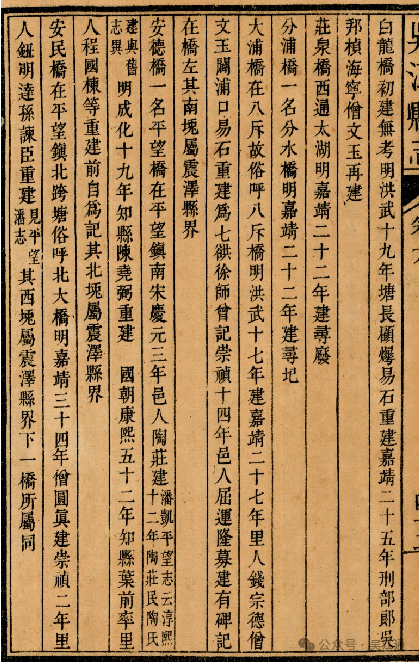 白龍橋初建無考明洪武十九年塘長顧爆易石重建嘉靖二十五年刑部郎吳
邦楨海寧僧文玉再建
莊泉橋西通太湖明嘉靖二十二年建尋廢
分浦橋一名分水橋明嘉靖二十二年建尋圯
大浦橋在八斥故俗呼八斥橋明洪武十七年建嘉靖二十七年里人錢宗德僧
文玉闢浦口易石重建爲七㳄徐師曾記崇禎十四年邑人屈運隆募建有碑記
在橋左其南堍屬震澤縣界
安德橋一名平望橋在平望鎭南宋慶元三年邑人陶莊建潘凱平望志云淳熙十二年陶莊民陶氏
建與舊志異 明成化十九年知縣陳堯弼重建 國朝康熙五十二年知縣葉前率里
人程國棟等重建前自爲記其北堍屬震澤縣界
安民橋在平望鎭北跨塘俗呼北大橋明嘉靖三十四年僧圓眞建崇禎二年里
人鈕明達孫諫臣重建見平望潘志 其西堍屬震澤縣界下一橋所屬同
公众号